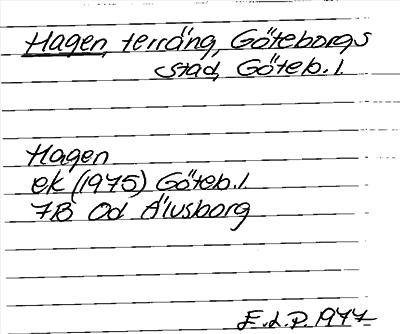 Hagen, terräng, Göteborgs
stad, Göteb. l.
Hagen
ek (1975) Göteb. l.
7B Od Älvsborg
E.L.P. 1977